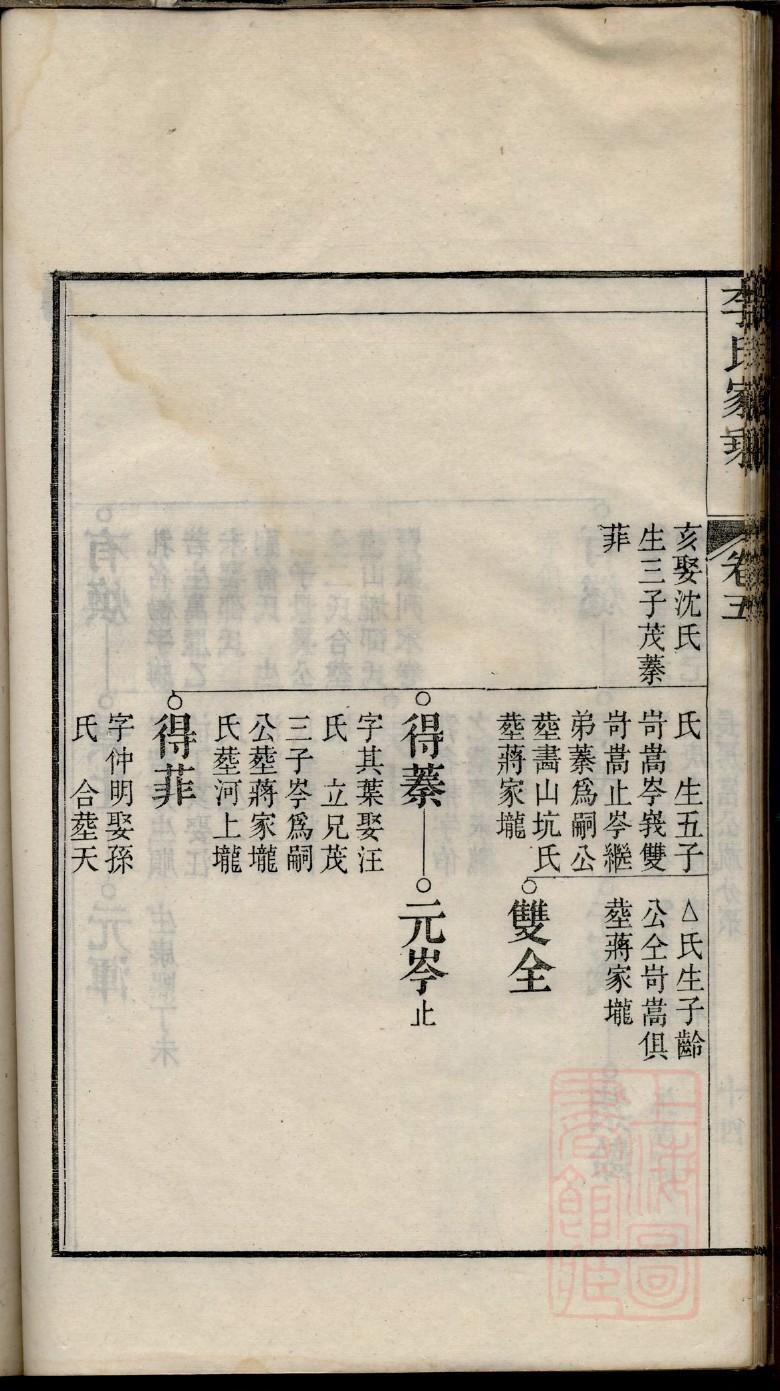 李氏家乘
卷五
亥娶沈氏
生三子茂蓁
菲
氏　生五子
岢嵩岑峩雙
岢嵩止岑繼
弟蓁爲嗣公
塟畵山坑氏
塟蔣家壠
△氏生子齡
公仝岢嵩俱
塟蔣家壠
雙全
得蓁
元岑止
字其葉娶汪
氏　立兄茂
三子岑爲嗣
公塟蔣家壠
氏塟河上壠
得菲
字仲明娶孫
氏　合塟天
上海圖書館藏